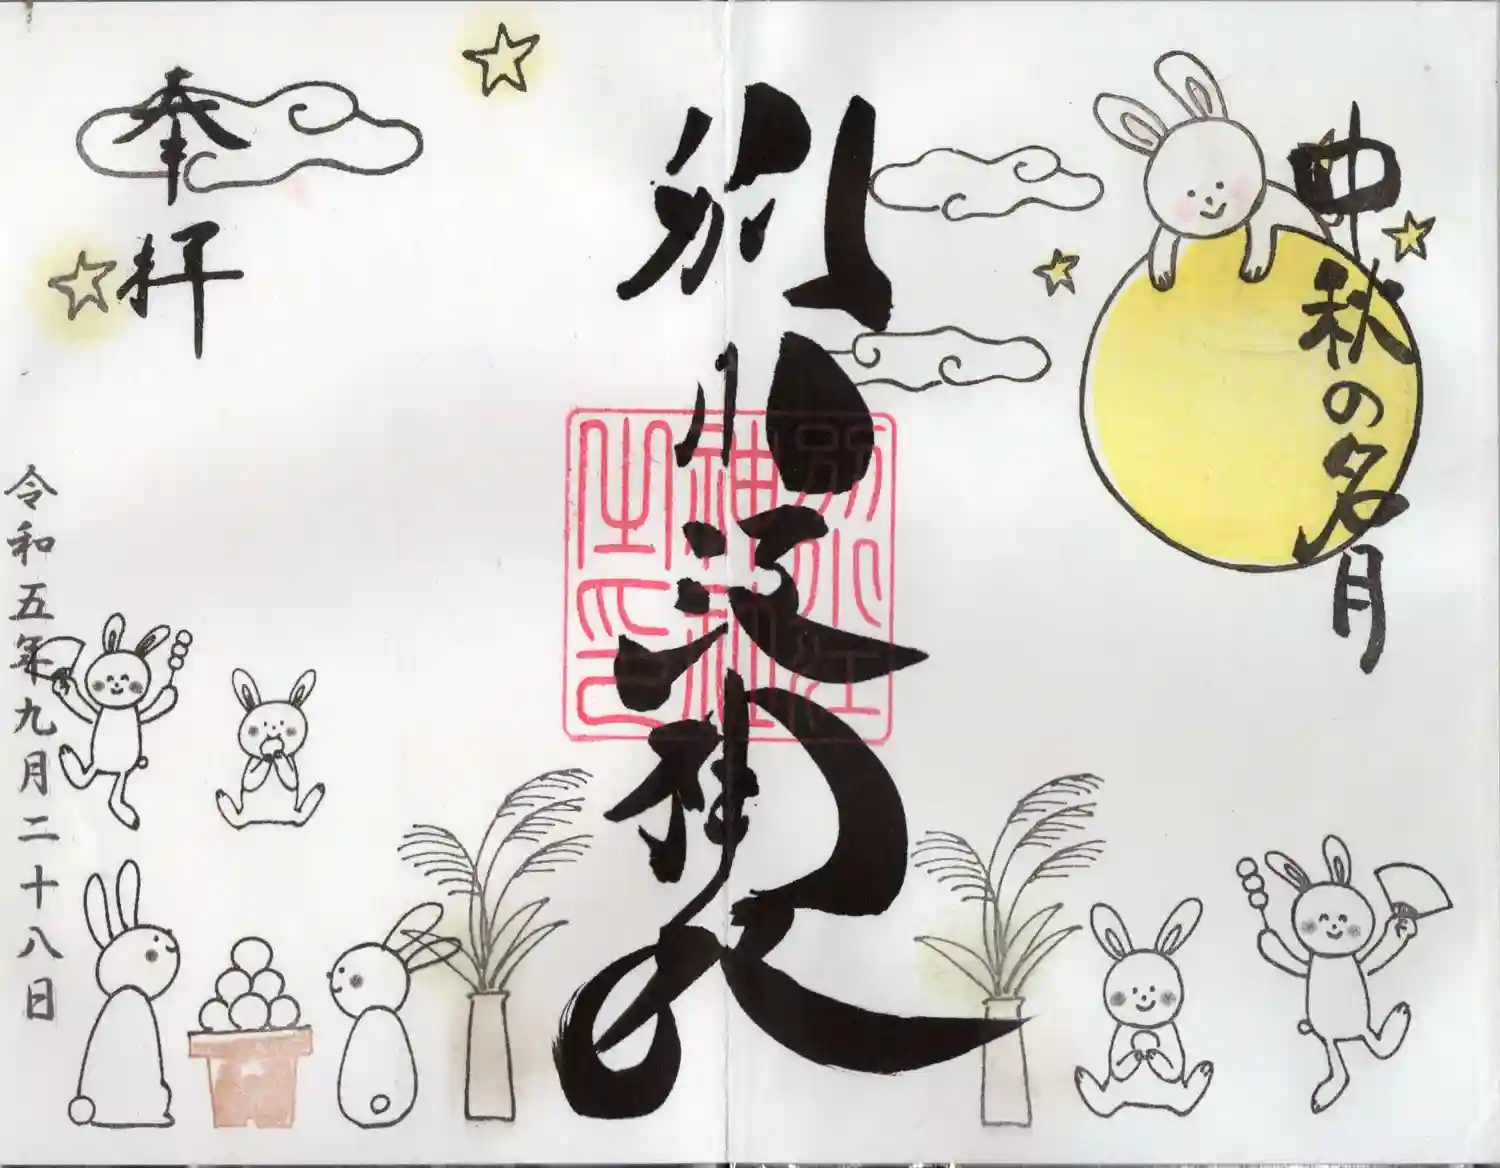 中秋の名月
別小江神社
別小江
神社
之印
奉拝
令和五年九月二十八日